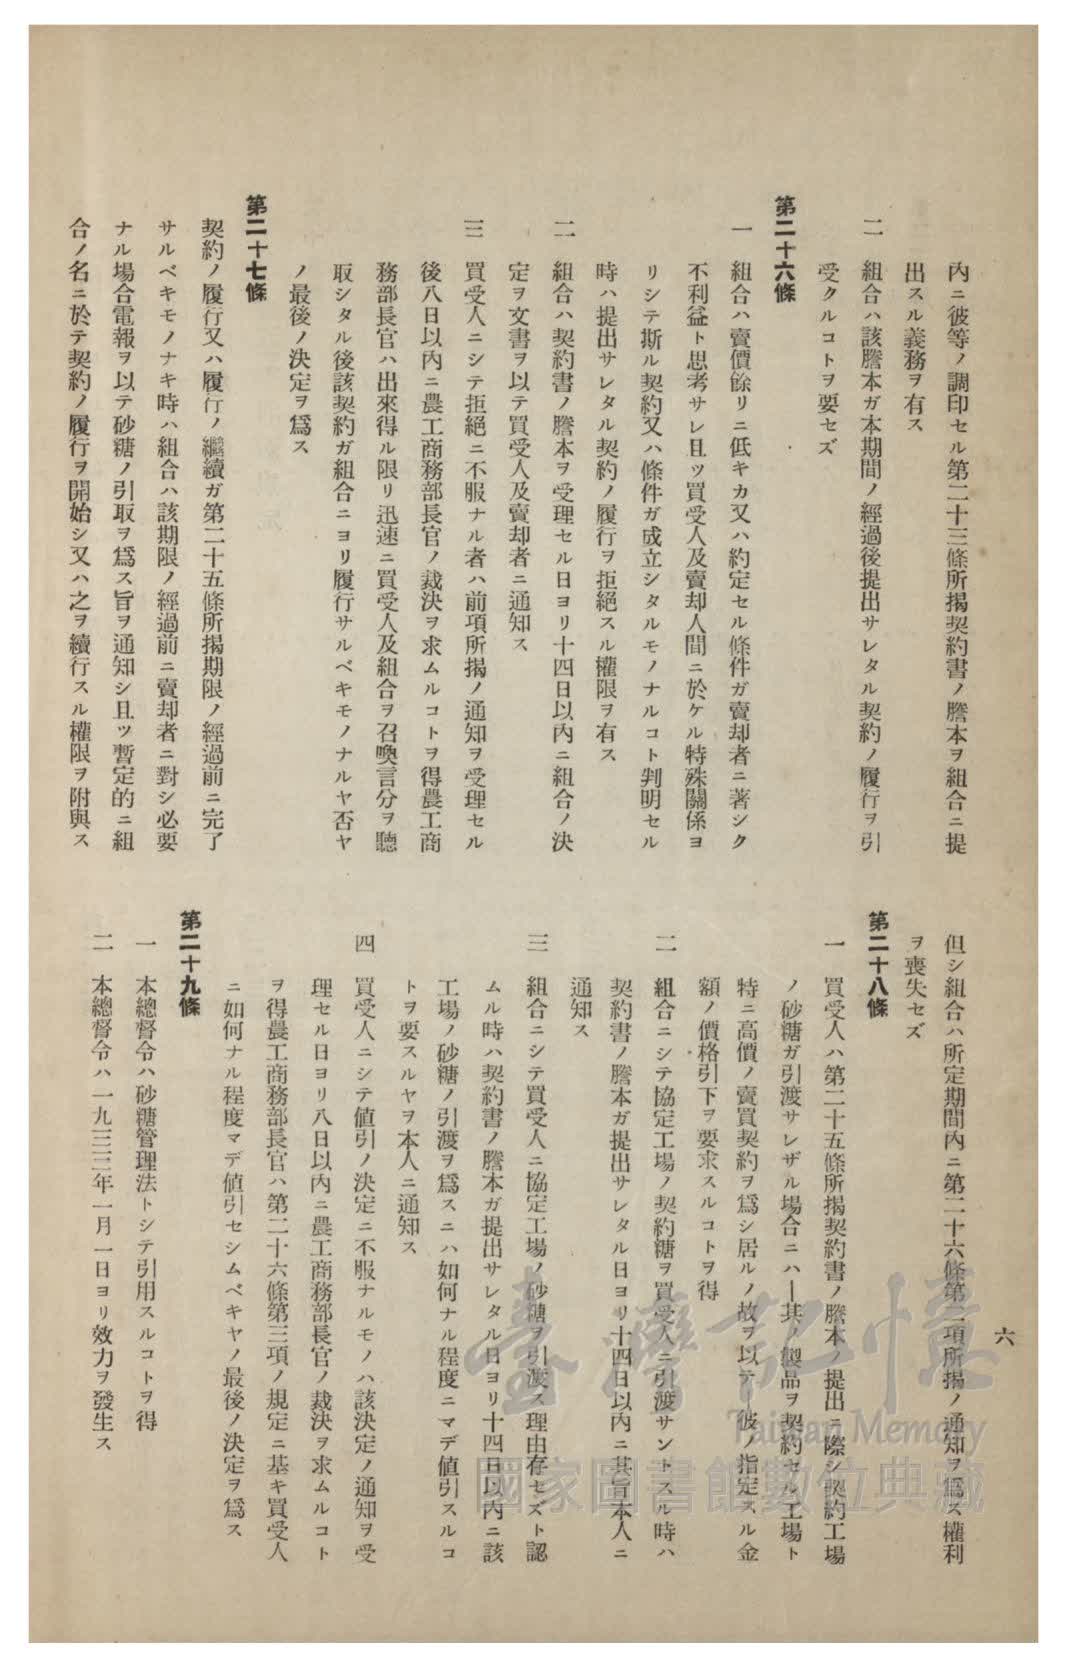 六
內ニ彼等ノ調印セル第二十三條所揭契約書ノ謄本ヲ組合ニ提
出スル義務ヲ有ス
二 組合ハ該謄本ガ本期間ノ經過後提出サレタル契約ノ履行ヲ引
受クルコトヲ要セズ
第二十六條
一 組合ハ賣價餘リニ低キカ又ハ約定セル條件ガ賣却者ニ著シク
不利益ト思考サレ且ツ買受人及賣却人間ニ於ケル特殊關係ヨ
リシテ斯ル契約又ハ條件ガ成立シタルモノナルコト判明セル
時ハ提出サレタル契約ノ履行ヲ拒絕スル權限ヲ有ス
二 組合ハ契約書ノ謄本ヲ受理セル日ヨリ十四日以內ニ組合ノ決
定ヲ文書ヲ以テ買受人及賣却者ニ通知ス
三 買受人ニシテ拒絕ニ不服ナル者ハ前項所揭ノ通知ヲ受理セル
後八日以內ニ農工商務部長官ノ裁決ヲ求ムルコトヲ得農工商
務部長官ハ出來得ル限リ迅速ニ買受人及組合ヲ召喚言分ヲ聽
取シタル後該契約ガ組合ニヨリ履行サルベキモノナルヤ否ヤ
ノ最後ノ決定ヲ爲ス
第二十七條
契約ノ履行又ハ履行ノ繼續ガ第二十五條所揭期限ノ經過前ニ完了
サルベキモノナキ時ハ組合ハ該期限ノ經過前ニ賣却者ニ對シ必要
ナル場合電報ヲ以テ砂糖ノ引取ヲ爲ス旨ヲ通知シ且ツ暫定的ニ組
合ノ名ニ於テ契約ノ履行ヲ開始シ又ハ之ヲ續行スル權限ヲ附與ス
但シ組合ハ所定期間內ニ第二十六條第二項所揭ノ通知ヲ爲ス權利
ヲ喪失セズ
第二十八條
一 買受人ハ第二十五條所揭契約書ノ謄本ノ提出ニ際シ契約工場
ノ砂糖ガ引渡サレザル場合ニハ―其ノ製品ヲ契約セル工場ト
特ニ高價ノ賣買契約ヲ爲シ居ルノ故ヲ以テ―彼ノ指定スル金
額ノ價格引下ヲ要求スルコトヲ得
二 組合ニシテ協定工場ノ契約糖ヲ買受人ニ引渡サントスル時ハ
契約書ノ謄本ガ提出サレタル日ヨリ十四日以內ニ其旨本人ニ
通知ス
三 組合ニシテ買受人ニ協定工場ノ砂糖ヲ引渡ス理由存セズト認
ムル時ハ契約書ノ謄本ガ提出サレタル日ヨリ十四日以內ニ該
工場ノ砂糖ノ引渡ヲ爲スニハ如何ナル程度ニマデ値引スルコ
トヲ要スルヤヲ本人ニ通知ス
四 買受人ニシテ値引ノ決定ニ不服ナルモノハ該決定ノ通知ヲ受
理セル日ヨリ八日以內ニ農工商務部長官ノ裁決ヲ求ムルコト
ヲ得農工商務部長官ハ第二十六條第三項ノ規定ニ基キ買受人
ニ如何ナル程度マデ値引セシムベキヤノ最後ノ決定ヲ爲ス
第二十九條
一 本總督令ハ砂糖管理法トシテ引用スルコトヲ得
二 本總督令ハ一九三三年一月一日ヨリ效力ヲ發生ス
臺灣記憶
Taiwan Memory
國家圖書館數位典藏